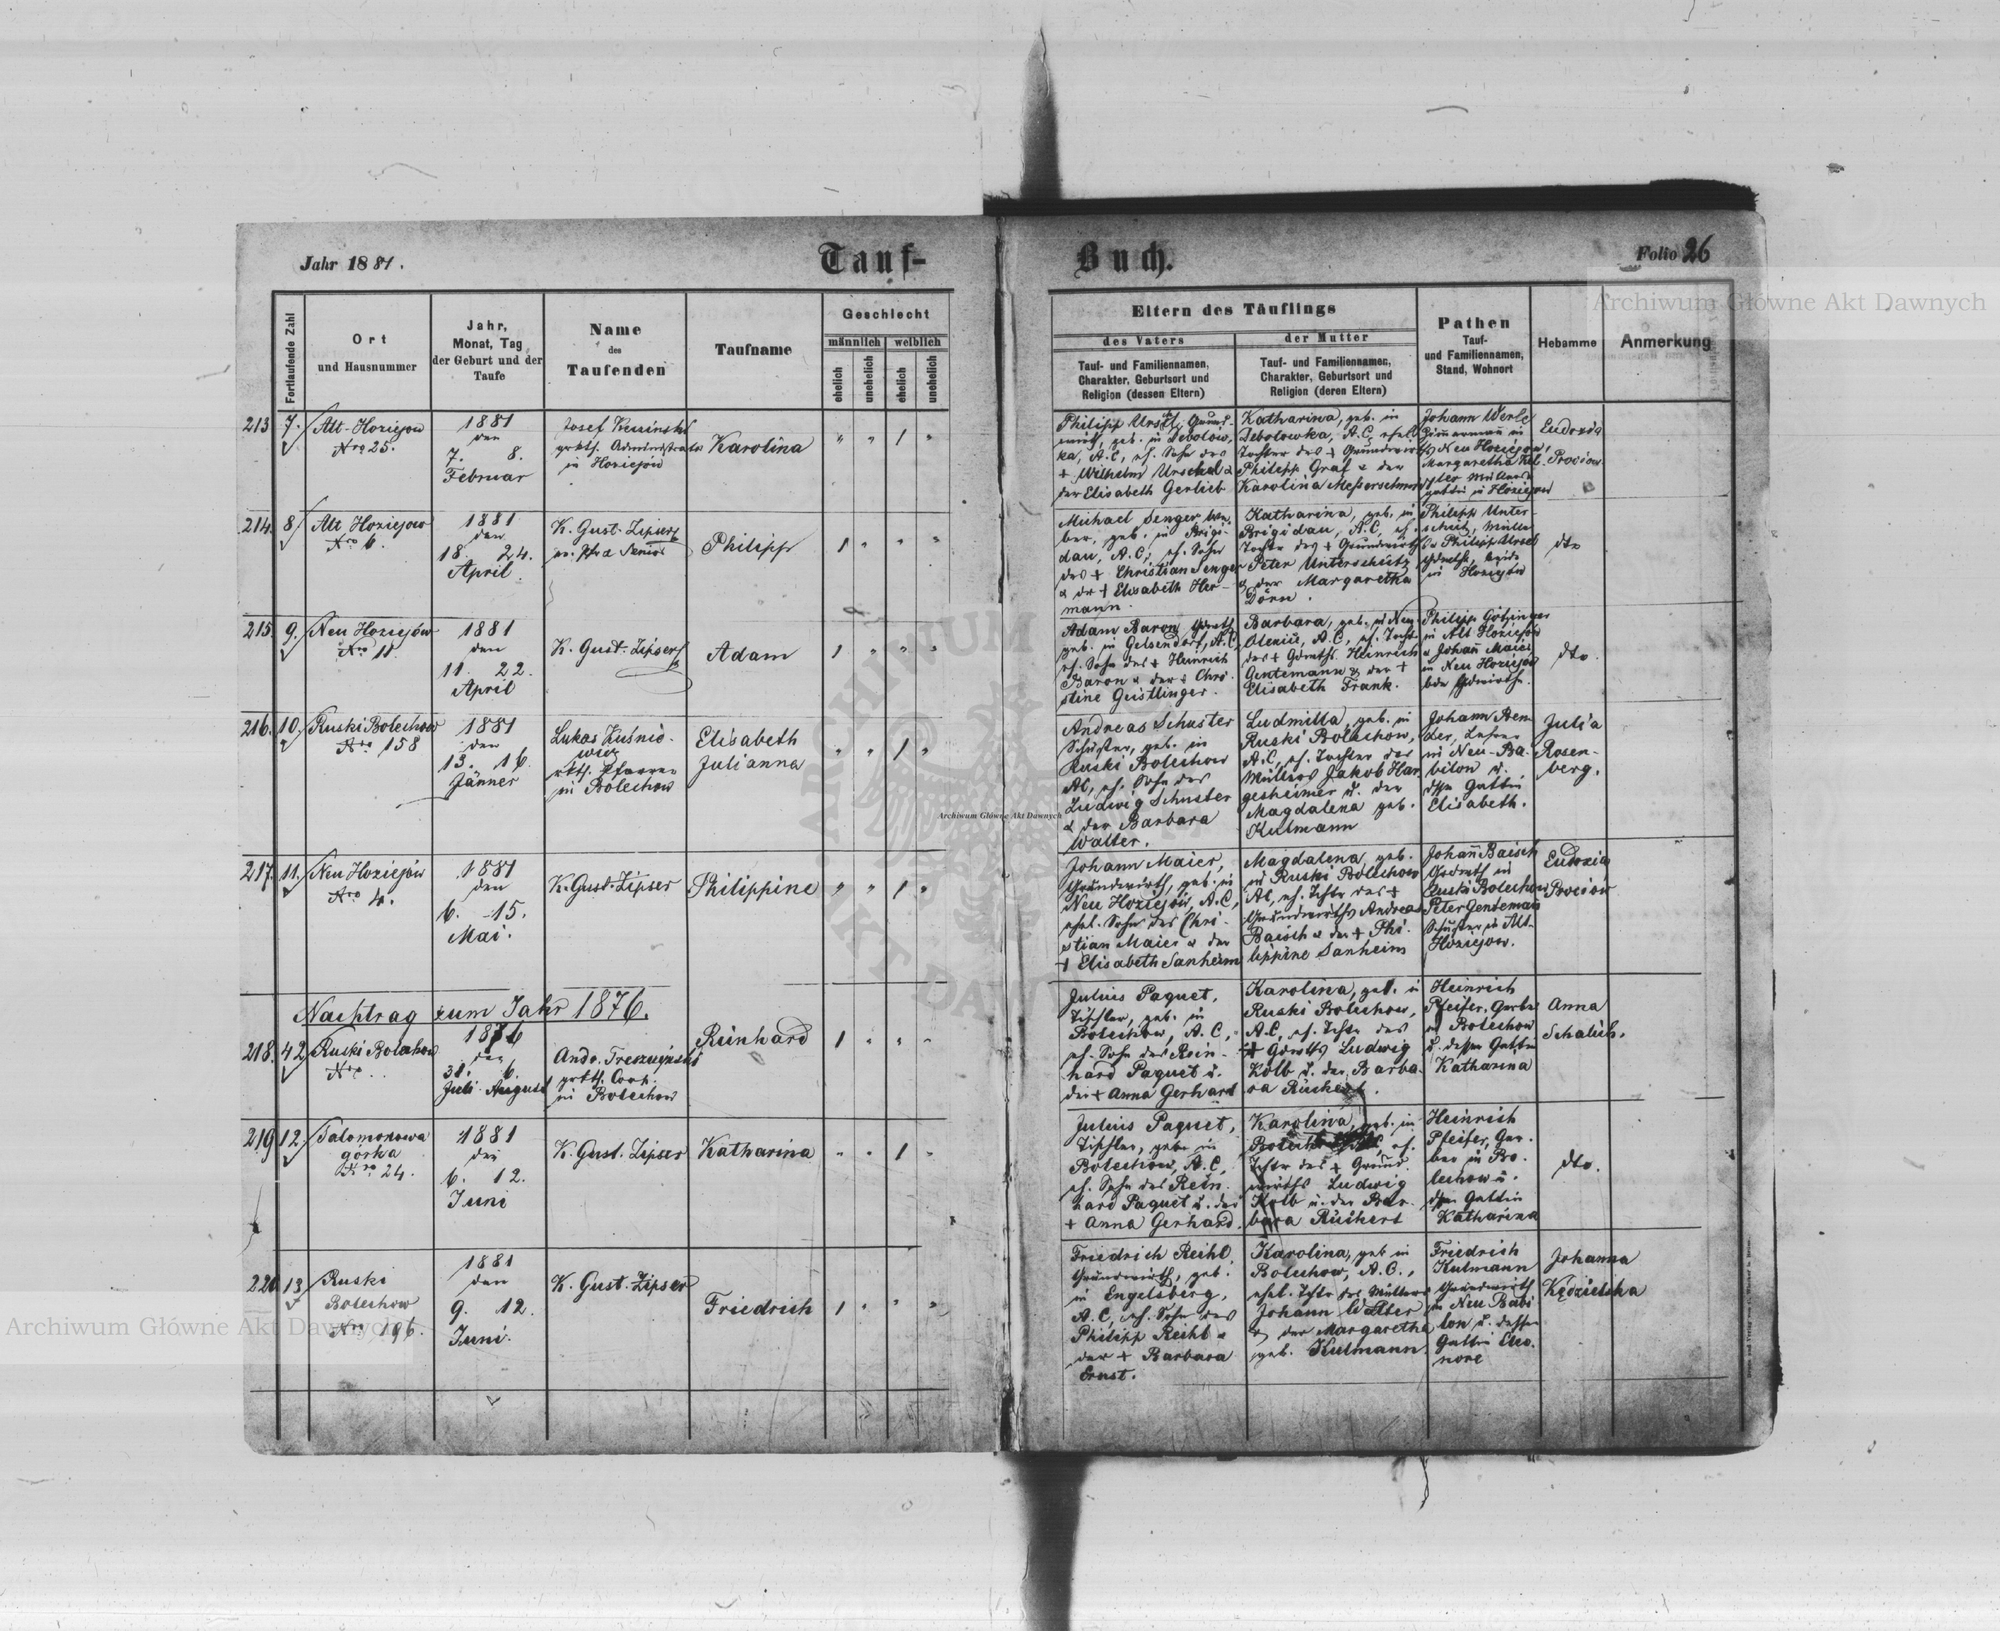 Jahr 1881.
Tauf-
Buch.
Folio 26
Fortlaufende Zahl
Ort
und Hausnummer
Jahr,
Monat, Tag
der Geburt und der
Taufe
Name
des
Taufenden
Taufname
Geschlecht
männlich
weiblich
ehelich
unehelich
ehelich
unehelich
Eltern des Täuflings
des Vaters
Tauf- und Familiennamen,
Charakter, Geburtsort und
Religion (dessen Eltern)
der Mutter
Tauf- und Familiennamen,
Charakter, Geburtsort und
Religion (deren Eltern)
Pathen
Tauf-
und Familiennamen,
Stand, Wohnort
Hebamme
Anmerkung
213 7.
Alt-Hoziejow
Nro 25.
1881
den
7. 8.
Februar
Josef
grkth. Administrator
in Hoziejów
Karolina
" " 1 "
Philipp Urschl, Grund-
wirth, geb. in Debolow-
ka, A.C, eh. Sohn des
+ Wilhelm Urschel &
der Elisabeth Gerlieb
Katharina, geb. in
Debolowka, A.C, ehel.
Tochter des + Grundwirths
Philipp Graf & der
Karolina Messerschmid
Johann Werle
Zimmermann in
Neu Hoziejow,
Margaretha
Müllers
gattin in Hoziejow
Eudoxia
Prociow
214. 8
Alt Hoziejow
Nro 6.
1881
den
18. 24.
April.
K. Gust. Zipser
ev. Pfr & Senior
Philipp
1 " " "
Michael Senger, We-
ber, geb. in Brigi-
dau, A.C, eh. Sohn
des + Christian Senger
& dr + Elisabeth Her-
mann.
Katharina, geb. in
Brigidau, A.C, eh.
Tochter des + Grundwirths
Peter Unterschütz
& der Margaretha
Dörn.
Philipp Unter-
schütz, Müller
& Philipp Ursel
Gdwrth, beide
in Hoziejów
dto
215. 9.
Neu Hoziejów
Nro 11.
1881
den
11. 22.
April
K. Gust. Zipser
Adam
1 " " "
Adam Baron, Gdwrth
geb. in Gelsendorf, A.C,
eh. Sohn des + Heinrich
Baron & der + Chri-
stine Geistlinger.
Barbara, geb. in Neu
A.C, eh. Tocht.
des + Gdwrths. Heinrich
Gentemann & der +
Elisabeth Frank.
Philipp Götzinger
in Alt Hoziejów
& Johañ Maier
in Neu Hoziejów
bde Gdwirthe.
dto.
216. 10.
Ruski Bolechow
Nro 158
1881
den
13. 16.
Jänner
Lukas Kuśnie-
wicz
rkth. Pfarrer
in Bolechow
Elisabeth
Julianna
" " 1 "
Andreas Schuster
Schuster, geb. in
Ruski Bolechow
AC, eh. Sohn des
Ludwig Schuster
& der Barbara
Walter.
Ludmilla, geb. in
Ruski Bolechow,
A.C, eh. Tochter des
Müllers Jakob Har
gesheimer u. der
Magdalena geb.
Kulmann
Johann Ben-
der, Lehrer
in Neu-Ba-
bilon u.
dssn Gattin
Elisabeth.
Julia
Rosen-
berg.
217. 11.
Neu Hoziejów
Nro 4.
1881
den
6. - 15.
Mai.
K. Gust. Zipser
Philippine
" " 1 "
Johann Maier,
Grundwirth, geb. in
Neu Hoziejów, A.C,
ehel. Sohn des Chri-
stian Maier & der
+ Elisabeth Sanheim
Magdalena, geb.
in Ruski Bolechow
AC, eh. Tchtr des +
Grundwirths Andreas
Baisch & der + Phi-
lippine Sanheim
Johañ Baisch
Gdwrth in
Ruski Bolechow
Peter Genteman
Schuster in Alt-
Hoziejow.
Eudoxia
Prociów
Nachtrag zum Jahr 1876.
218. 42
Ruski Bolechow
Nro .
1876
den
31. 6.
Juli August
Andr.
grkth. Coop.
in Bolechow
Reinhard
1 " " "
Julius Paquet,
Tischler, geb. in
Bolechow, A.C,
eh. Sohn des Rein-
hard Paquet u.
der + Anna Gerhard
Karolina, geb. in
Ruski Bolechow,
A.C, eh. Tchtr des
+ Gdwrths Ludwig
Kolb u. der Barba-
ra Rückert.
Heinrich
Pfeifer, Gerber
in Bolechow
u. dessen Gattin
Katharina
Anna
Schalich.
219 12.
Salomonowa
górka
Nro 24.
1881
den
6. 12.
Juni
K. Gust. Zipser
Katharina
" " 1 "
Julius Paquet,
Tischler, geb. in
Bolechow, A.C,
eh. Sohn des Rein-
hard Paquet u. der
+ Anna Gerhard.
Karolina, geb. in
eh.
Tchtr des + Grund-
wirths Ludwig
Kolb u. der Bar-
bara Rückert
Heinrich
Pfeifer, Ger-
ber in Bo-
lechow u.
dssn Gattin
Katharina
dto.
220 13.
Ruski
Bolechow
Nro 196.
1881
den
9. 12.
Juni.
K. Gust. Zipser
Friedrich
1 " " "
Friedrich Reihl,
Grundwirth, geb.
in Engelsberg,
A.C, eh. Sohn des
Philipp Reihl &
der + Barbara
Ernst.
Karolina, geb in
Bolechow, A.C.,
ehel. Tchtr des Müllers
Johann Walter
& der Margaretha
geb. Kulmann
Friedrich
Kulmann
Grundwirth
in Neu Babi
lon u. dessen
Gattin Eleo-
nore
Johanna
Kędzielska
Archiwum Główne Akt Dawnych
Archiwum Główne Akt Dawnych
Archiwum Główne Akt Dawnych
ARCHIWUM GŁÓWNE AKT DAWNYCH